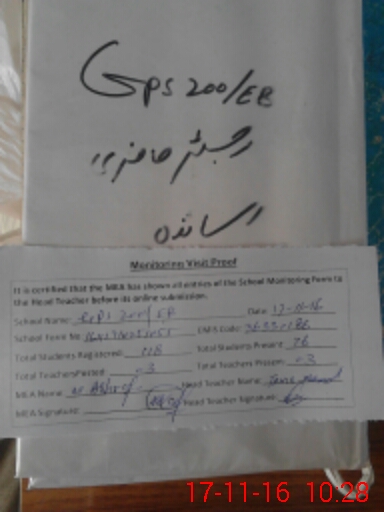 GPS 200/EB
رجسٹر حاضری
اساتذہ
Monitoring Visit Proof
It is certified that the MEA has shown all entries of the School Monitoring Form to
the Head Teacher before its online submission.
School Name: GPS 200/EB Date: 17-11-16
School Form No: EMIS Code:
Total Students Registered: 118 Total Students Present: 76
Total Teachers Posted: -3 Total Teachers Present: -3
MEA Name: M Ashraf Head Teacher Name:
MEA Signature: Head Teacher Signature:
17-11-16 10:28